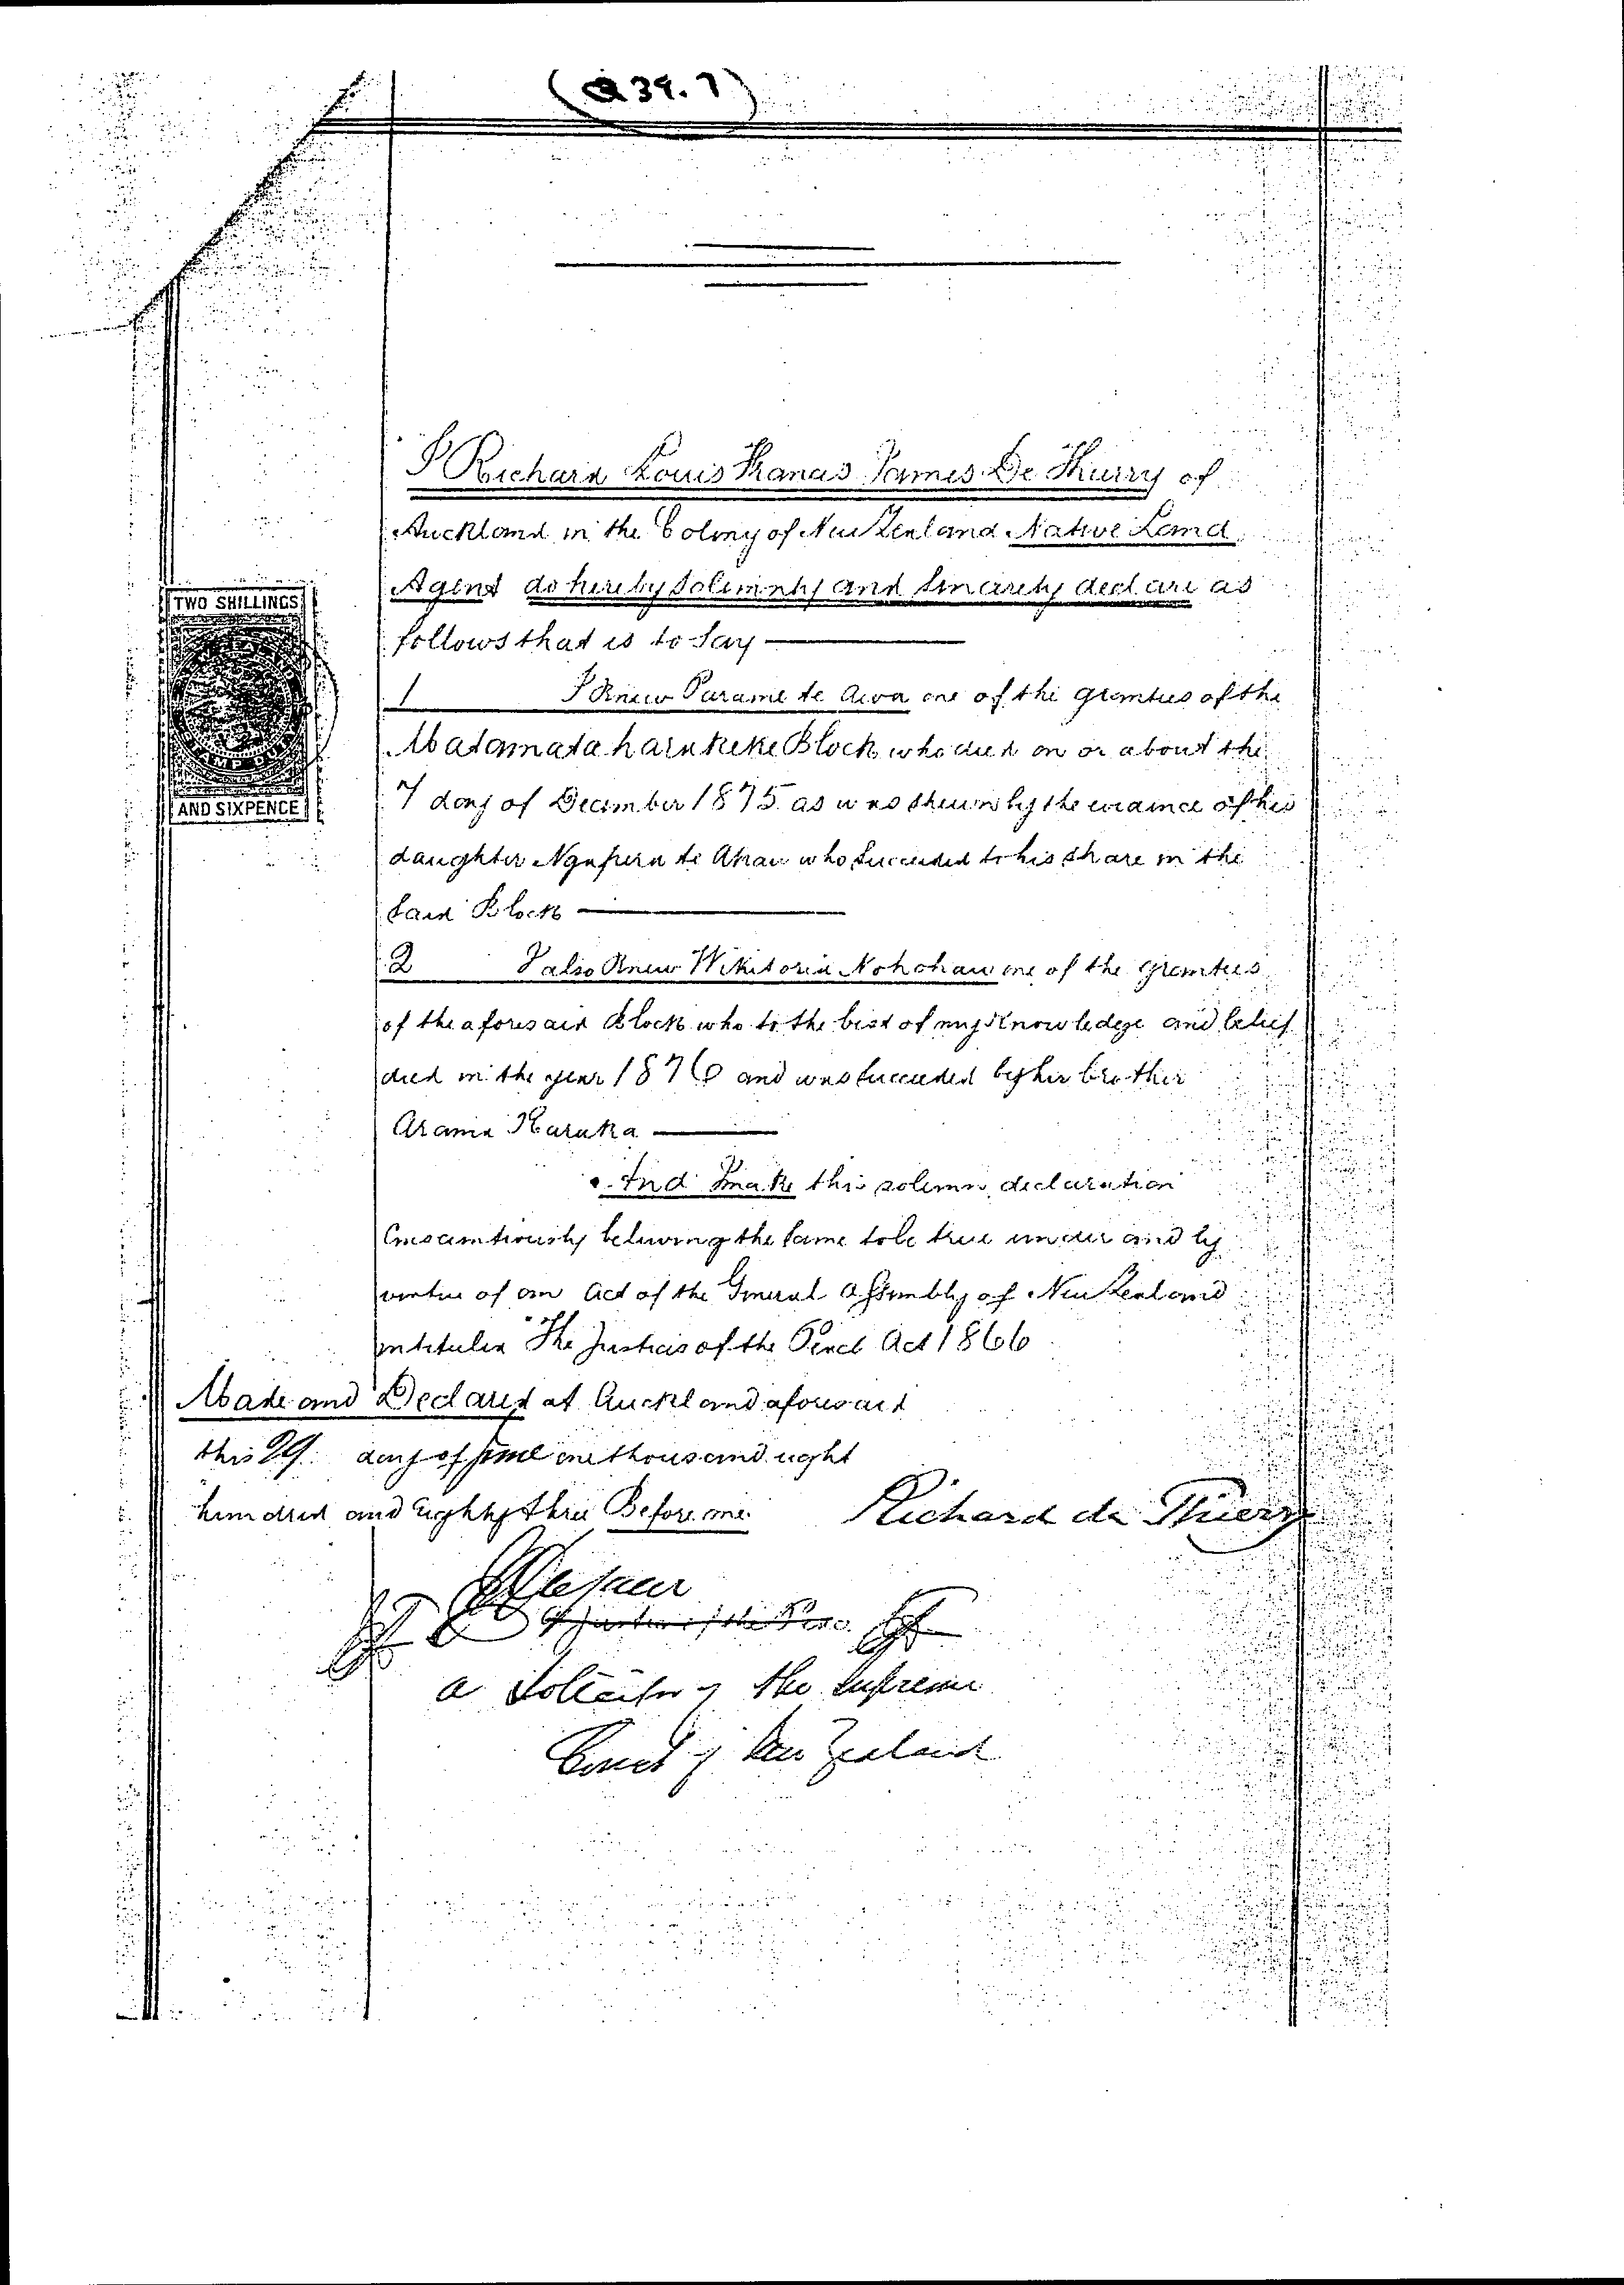 (Q 39. 7)
I Richard Louis Francis James De Thierry of
Auckland in the Colony of New Zealand Native Land
Agent do hereby solemnly and sincerely declare as
follows that is to say
1 I knew Parame te Awa one of the grantees of the
Matamataharakeke Block who died on or about the
7 day of December 1875 as was shewn by the evidence of his
daughter te Ahau who succeeded to his share in the
said Block
2 I also knew Wikitoria Nohohau one of the grantees
of the aforesaid Block who to the best of my knowledge and belief
died in the year 1876 and was succeeded by her brother
Arama Karaka
And I make this solemn declaration
Conscientiously believing the same to be true under and by
virtue of an Act of the General Assembly of New Zealand
intituled "The Justices of the Peace Act 1866
Made and Declared at Auckland aforesaid
this 29 day of June one thousand eight
hundred and eighty three Before me
Richard de Thierry
A Justice of the Peace
a Solicitor of the Supreme
Court of New Zealand
TWO SHILLINGS
STAMP DUTY
AND SIXPENCE